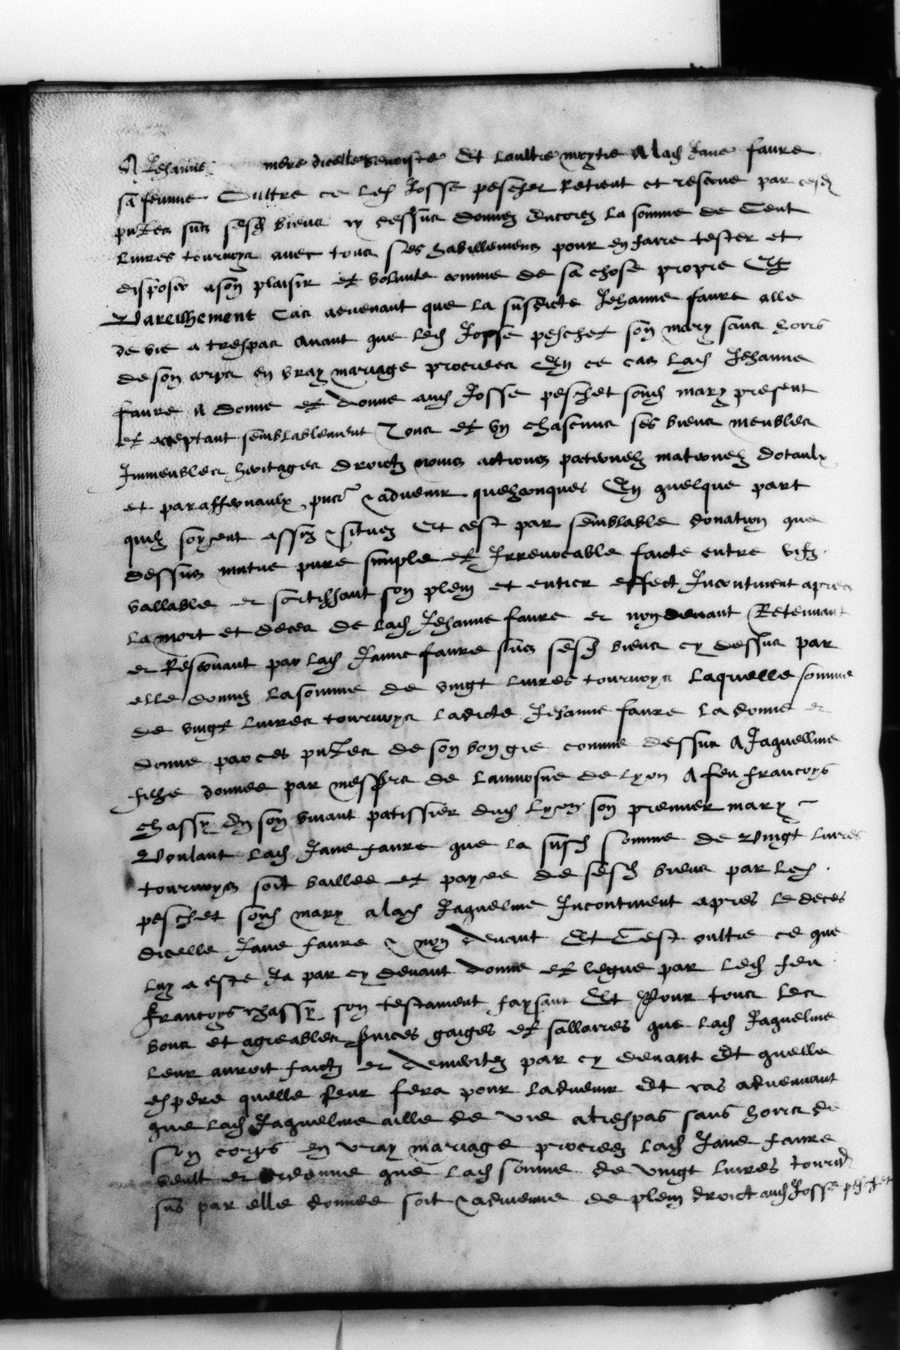 A Jehanne mere dicelle benoiste Et laultre moytie A lad Jane faure
sa femme Oultre ce led Josse peschet Retient et reserve par cesd
pntes sus sesd biens cy dessus donnez Encores la somme de Cent
livres tournoys avec tous ses habillemens pour en faire tester et
disposer a son plaisir et volunte comme de sa chose propre Et
Pareilhement Cas advenant que la susdicte Jehanne faure alle
de vie a trespas Avant que led Josse peschet son mary sans hoirs
de son corps en vray mariage procrees En ce cas lad Jehanne
faure A donne et donne aud Josse peschet sond mary present
et acceptant semblablement Tous et ung chascuns ses biens meubles
Immeubles heritages droictz noms actions paternelz maternelz dotaulx
et paraffernaulx pntz & advenir quelzconques En quelque part
quilz soyent assiz & situez Et cest par semblable donation que
dessus mutue pure simple et Irrevocable faicte entre vifz
vallable et sortissant son plein et entier effect Incontinent apres
la mort et deces de lad Jehanne faure et non devant Retenant
et Reservant par lad Janne faure sus sesd biens cy dessus par
elle donnez la somme de vingt livres tournoys laquelle somme
de vingt livres tournoys ladicte Jehanne faure la donne et
donne par ces pntes de son bon gre comme dessus A Jaquelline
filhe donnee par messrs de laulmosne de lyon A feu francoys
chassy En son vivant patissier dud lyon son premier mary
Voulant lad Jane faure que la susd somme de vingt livres
tournoys soit baillee et payee de sesd biens par led
peschet sond mary a lad Jaqueline Incontinent apres le deces
dicelle Jane faure & non devant Et Cest oultre ce que
luy a este Ja par cy devant donne et legue par led feu
francoys chassy son testament faysant Et Pour tous les
bons et agreables services gaiges et sallaires que lad Jaqueline
leur auroit faictz et demeritez par cy devant Et quelle
espere quelle leur fera pour ladvenir Et cas advenant
que lad Jaqueline aille de vie a trespas sans hoirs de
son corps en vray mariage procreez lad Jane faure
veult et ordonne que lad somme de vingt livres tourn
sus par elle donnee soit & advienne de plein droict aud Josse peschet